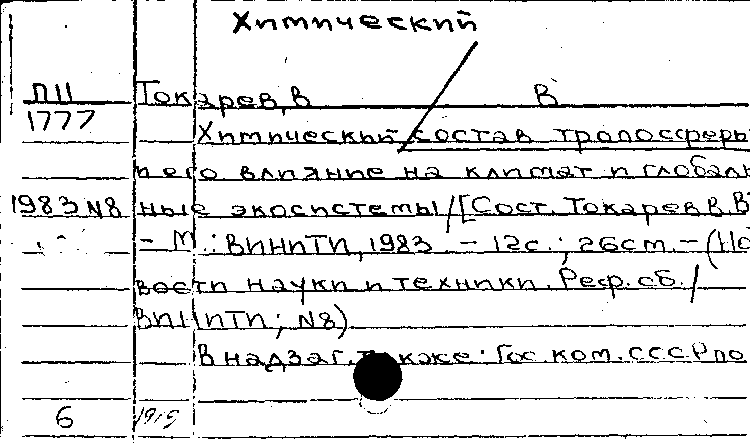 Химический
ПII Токарев, В В
1777 Химический состав тропосферы
и его влияние на климат и глобаль
1983 N8 ные экосистемы / [Сост. Токарев В. В
- М.: ВИНИТИ, 1983. - 12с.; 26см. - (Но
вости науки и техники. Реф. сб. /
ВИНИТИ; N8)
В надзаг. также: Гос. ком. СССР по
6